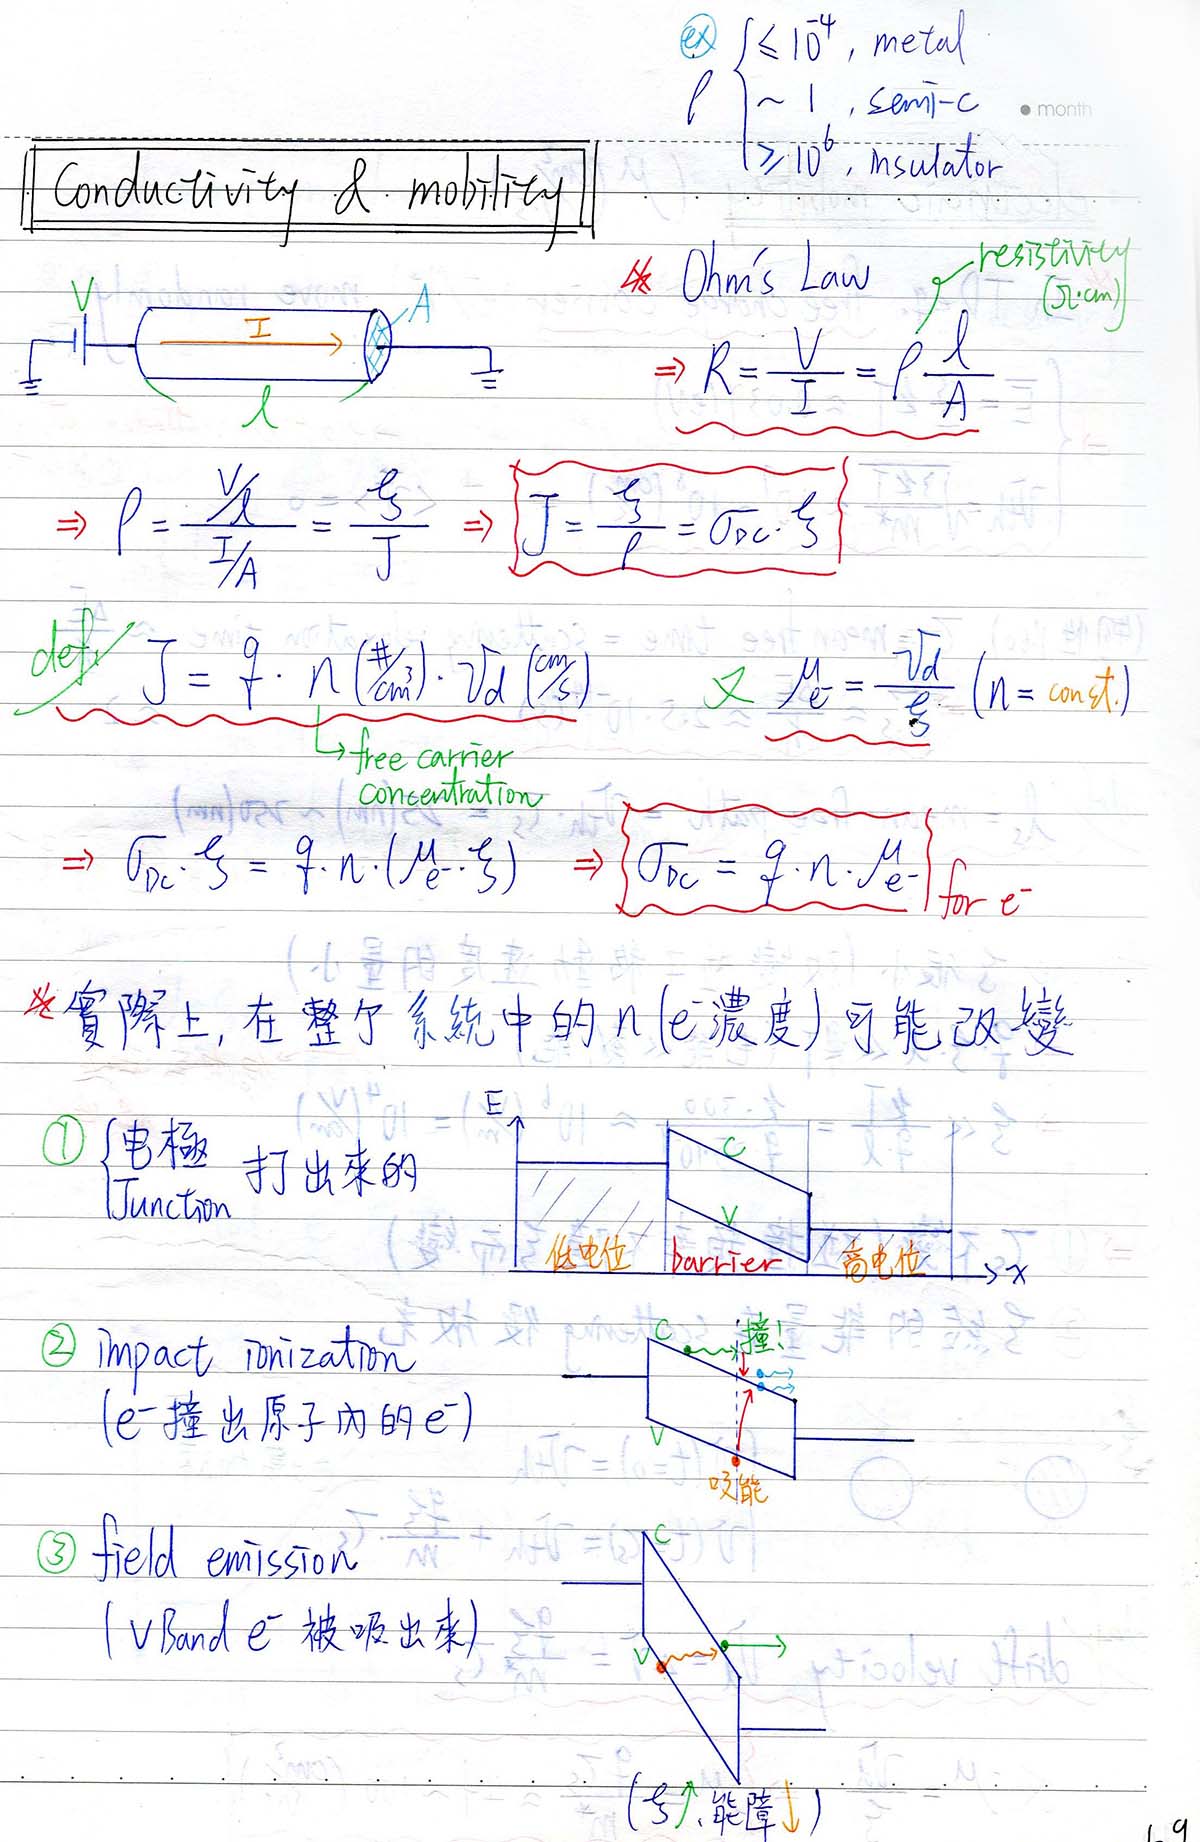 ex
ρ { ≤ 10⁻⁴, metal
~ 1, semi-c
≥ 10⁶, insulator
month
Conductivity & mobility
V I A l
※ Ohm's Law
resistivity (Ω·cm)
⇒ R = V/I = ρ l/A
⇒ ρ = (V/l)/(I/A) = ξ/J ⇒ J = ξ/ρ = σDC · ξ
def. J = q · n (#/cm³) · Vd (cm/s) 又 μe⁻ = Vd/ξ (n = const.)
free carrier
concentration
⇒ σDC · ξ = q · n · (μe⁻ · ξ) ⇒ σDC = q · n · μe⁻ for e⁻
※ 實際上, 在整个系統中的 n (e⁻濃度) 可能改變
① { 电極
Junction 打出來的
E C V
低电位 barrier 高电位 x
② impact ionization
(e⁻撞出原子內的 e⁻)
C 撞! V
吸能
③ field emission
(V Band e⁻ 被吸出來)
C V
(ξ↑, 能障↓)